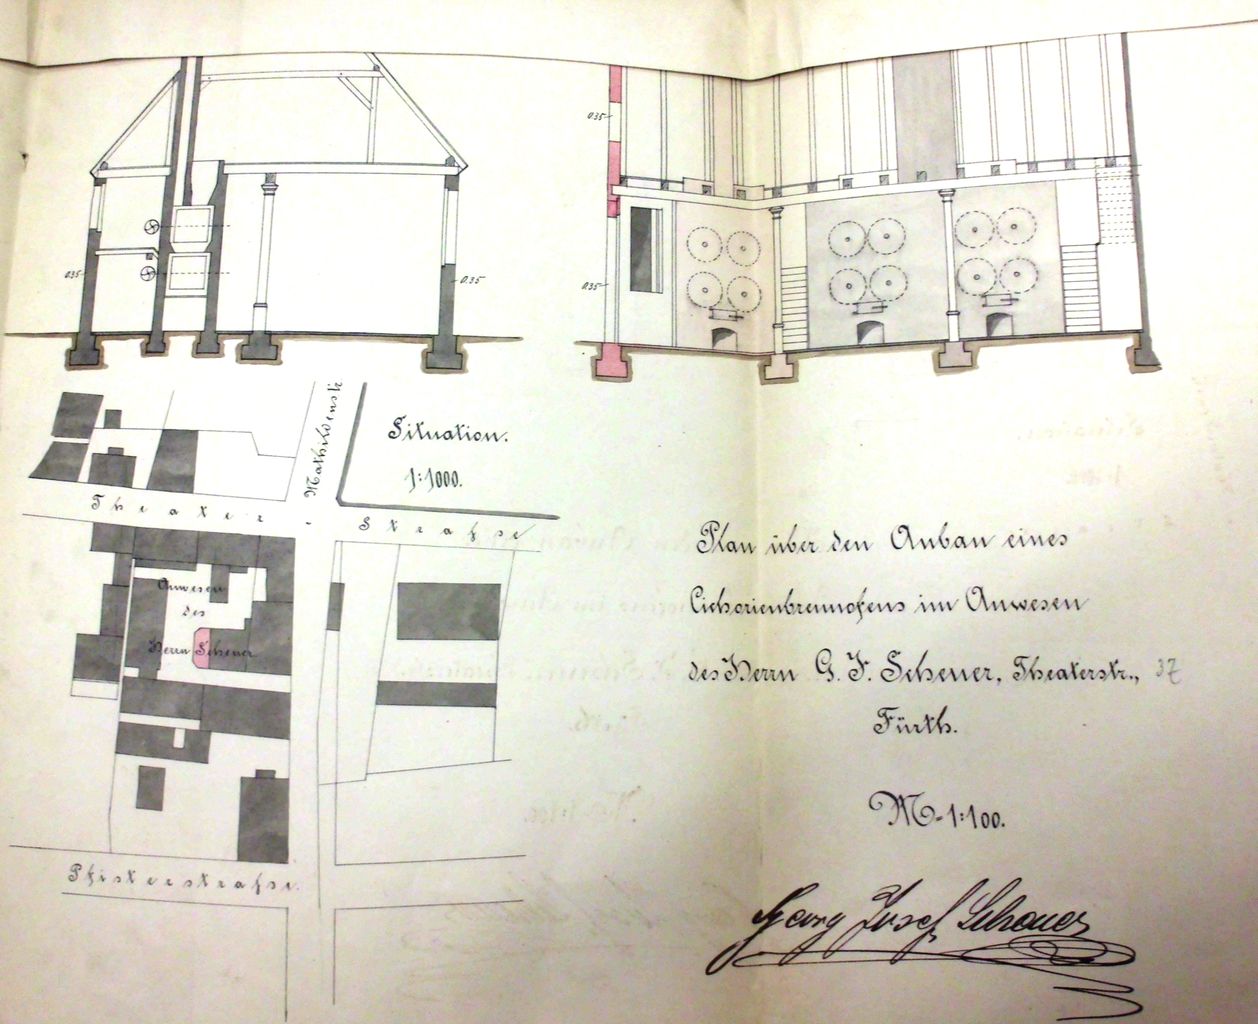 0.35
0.35
0.35
0.35
Situation.
1:1000.
Mathildenstr.
Theater - Strafse
Anwesen
des
Herrn Scheuer
Pfisterstrafse.
Plan über den Anbau eines
Cichorienbrennofens im Anwesen
des Herrn G. J. Scheuer, Theaterstr., 37
Fürth.
M=1:100.
Georg Josef Scheuer